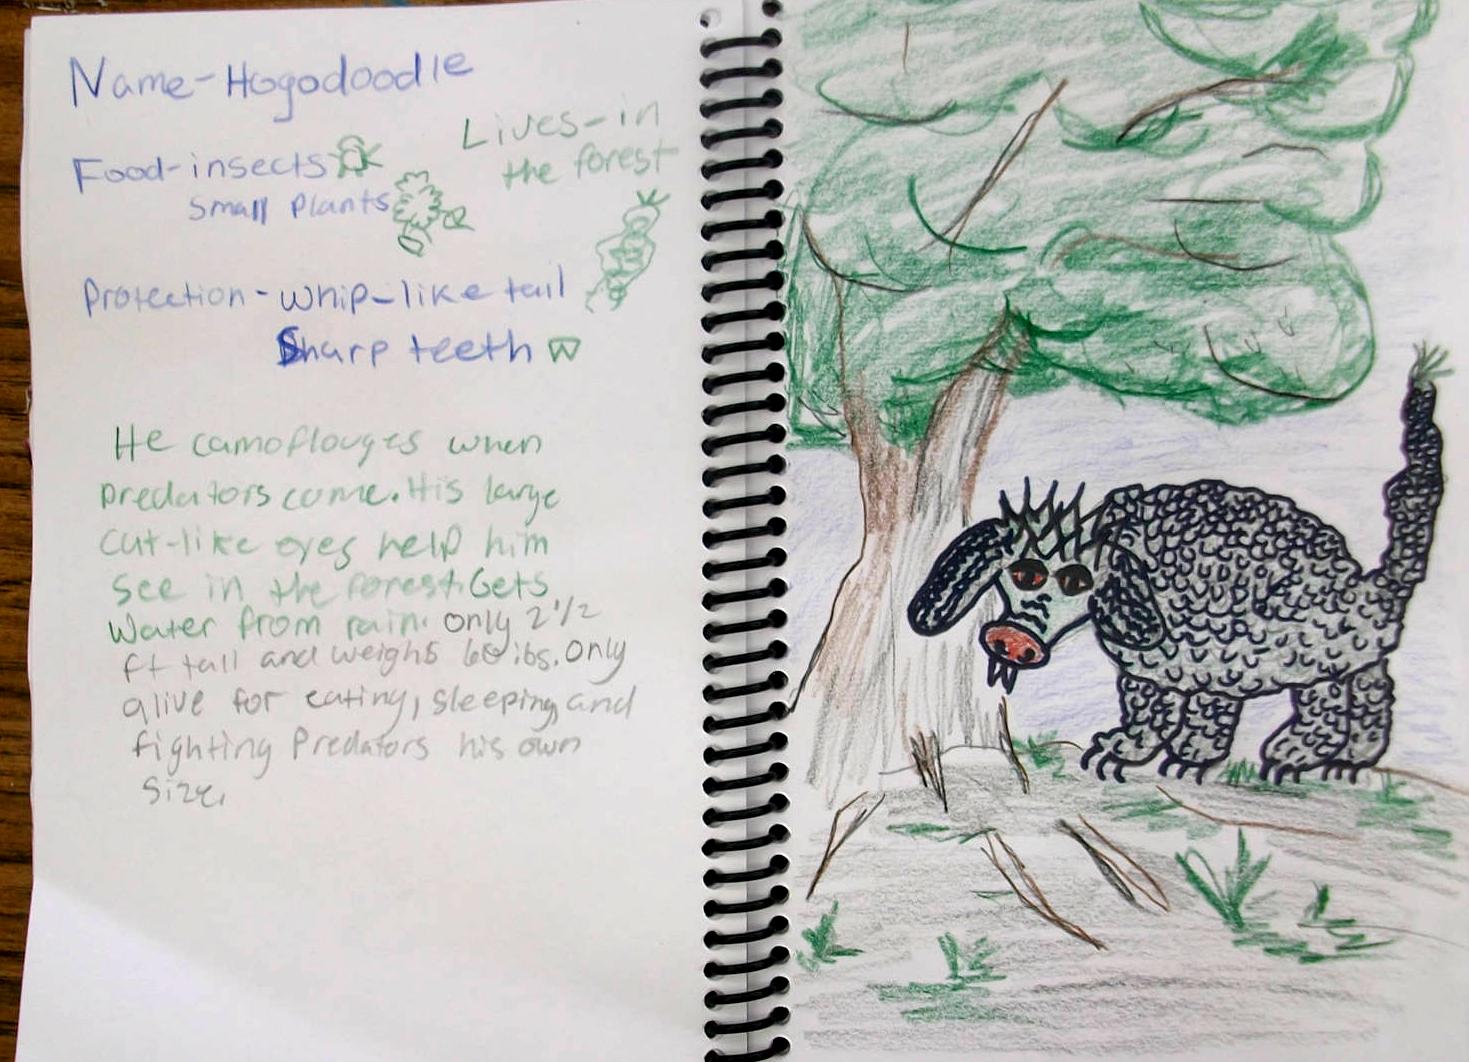 Name-Hogodoodle
Lives-in
the forest
Food-insects
Small Plants
Protection-whip-like tail
Sharp teeth
He camoflouges when
predators come. His large
cat-like eyes help him
see in the forest. Gets
Water from rain. only 2 1/2
ft tall and weighs 60 lbs. Only
alive for eating, sleeping, and
fighting Predators his own
size.